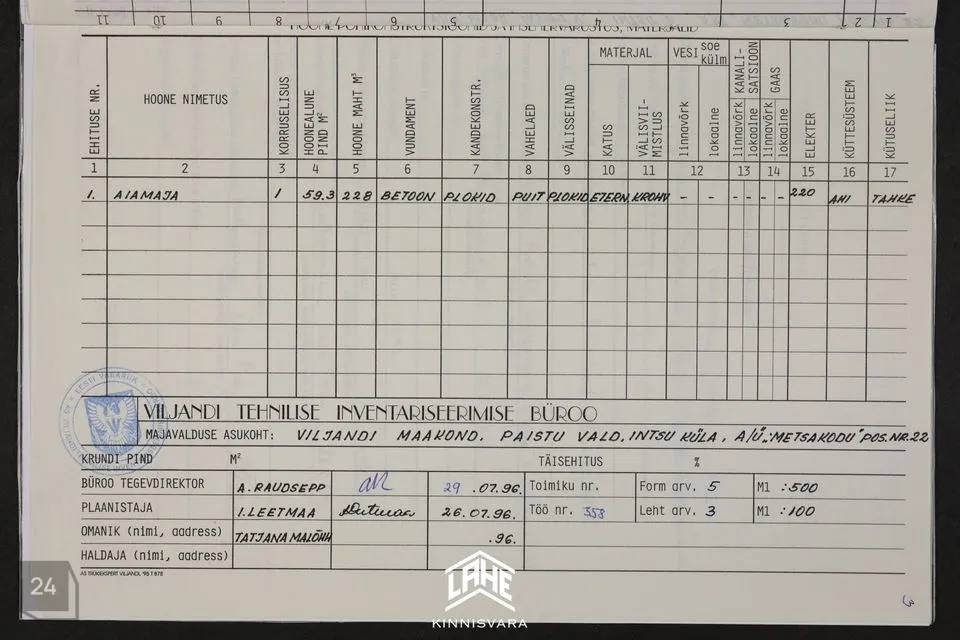 11 10 9 8 7 6 5 4 3 2 1
HOONE PÕHIKONSTRUKTSIOONID JA INSENERVARUSTUS, MATERJALID
EHITUSE NR. HOONE NIMETUS KORRUSELISUS HOONEALUNE PIND M² HOONE MAHT M³ VUNDAMENT KANDEKONSTR. VAHELAED VÄLISSEINAD MATERJAL KATUS VÄLISVII-MISTLUS VESI soe külm linnavõrk lokaalne KANALI-SATSIOON linnavõrk lokaalne GAAS linnavõrk lokaalne ELEKTER KÜTTESÜSTEEM KÜTUSELIIK
1 2 3 4 5 6 7 8 9 10 11 12 13 14 15 16 17
1. AIAMAJA 1 59.3 228 BETOON PLOKID PUIT PLOKID ETERN. KROHV - - - - - - 220 AHI TAHKE
VILJANDI TEHNILISE INVENTARISEERIMISE BÜROO
MAJAVALDUSE ASUKOHT: VILJANDI MAAKOND, PAISTU VALD, INTSU KÜLA, A/Ü „METSAKODU" POS.NR.22
KRUNDI PIND M² TÄISEHITUS %
BÜROO TEGEVDIREKTOR A. RAUDSEPP 29 .07.96. Toimiku nr. Form arv. 5 M1 :500
PLAANISTAJA I. LEETMAA 26.07.96. Töö nr. 358 Leht arv. 3 M1 :100
OMANIK (nimi, aadress) TATJANA .96.
HALDAJA (nimi, aadress)
AS TRÜKIEKSPERT VILJANDI '95 T 878
24
LAHE
KINNISVARA
3